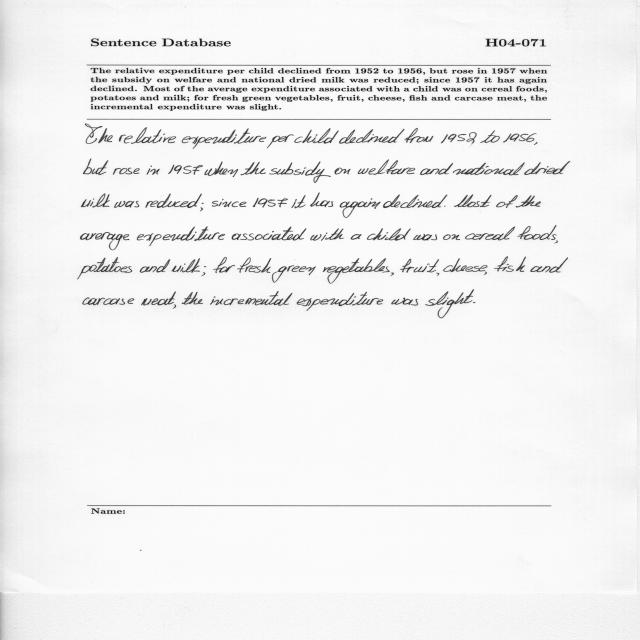 Sentence Database H04-071
The relative expenditure per child declined from 1952 to 1956, but rose in 1957 when
the subsidy on welfare and national dried milk was reduced; since 1957 it has again
declined. Most of the average expenditure associated with a child was on cereal foods,
potatoes and milk; for fresh green vegetables, fruit, cheese, fish and carcase meat, the
incremental expenditure was slight.
The relative expenditure per child declined from 1952 to 1956,
but rose in 1957 when the subsidy on welfare and national dried
milk was reduced; since 1957 it has again declined. Most of the
average expenditure associated with a child was on cereal foods,
potatoes and milk; for fresh green vegetables, fruit, cheese, fish and
carcase meat, the incremental expenditure was slight.
Name: